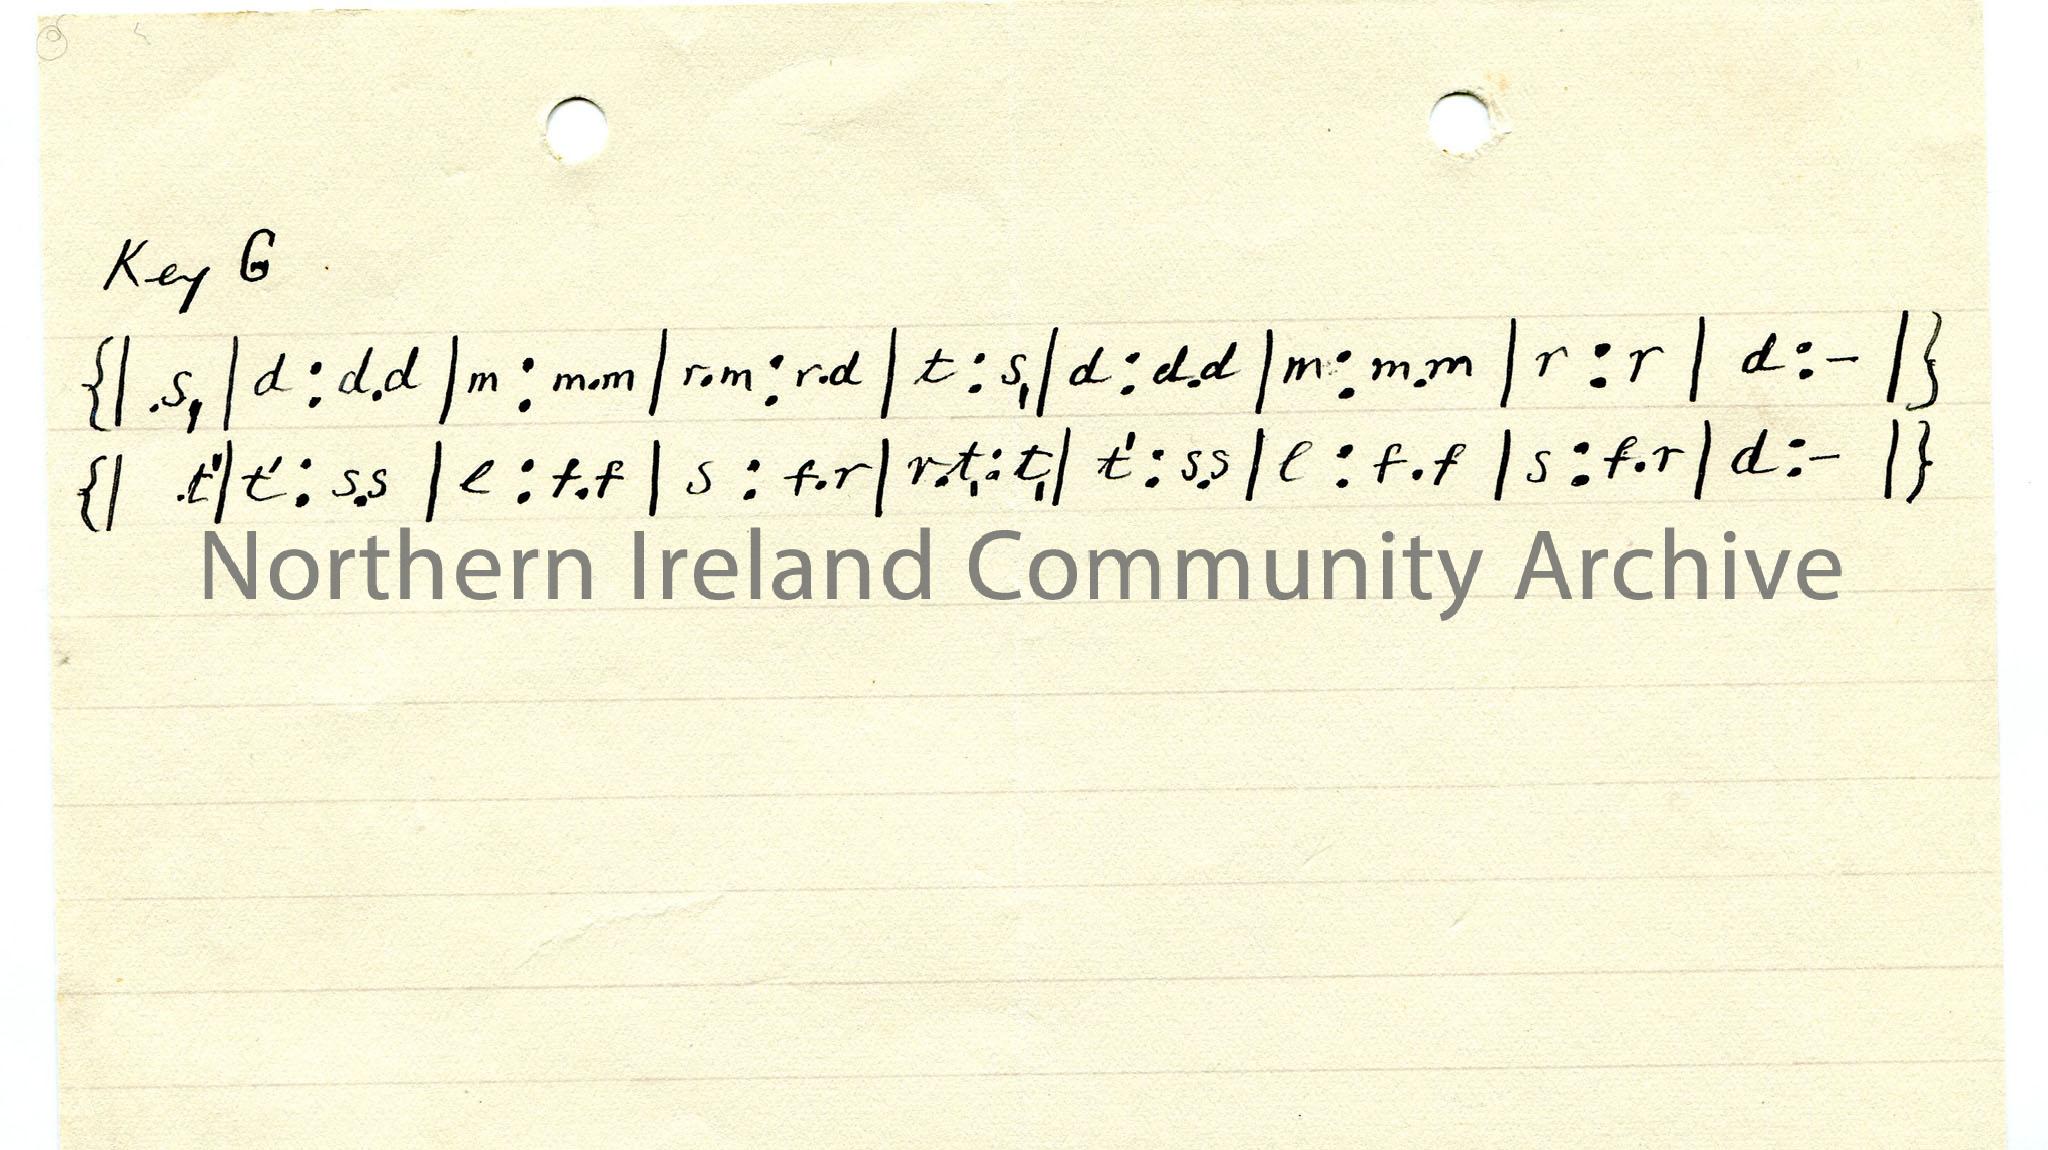 Key G
{| .s, | d : d.d | m : m.m | r.m : r.d | t : s, | d : d.d | m : m.m | r : r | d : – |}
{| .t' | t' : s.s | l : f.f | s : f.r | r.t, : t, | t' : s.s | l : f.f | s : f.r | d : – |}
Northern Ireland Community Archive